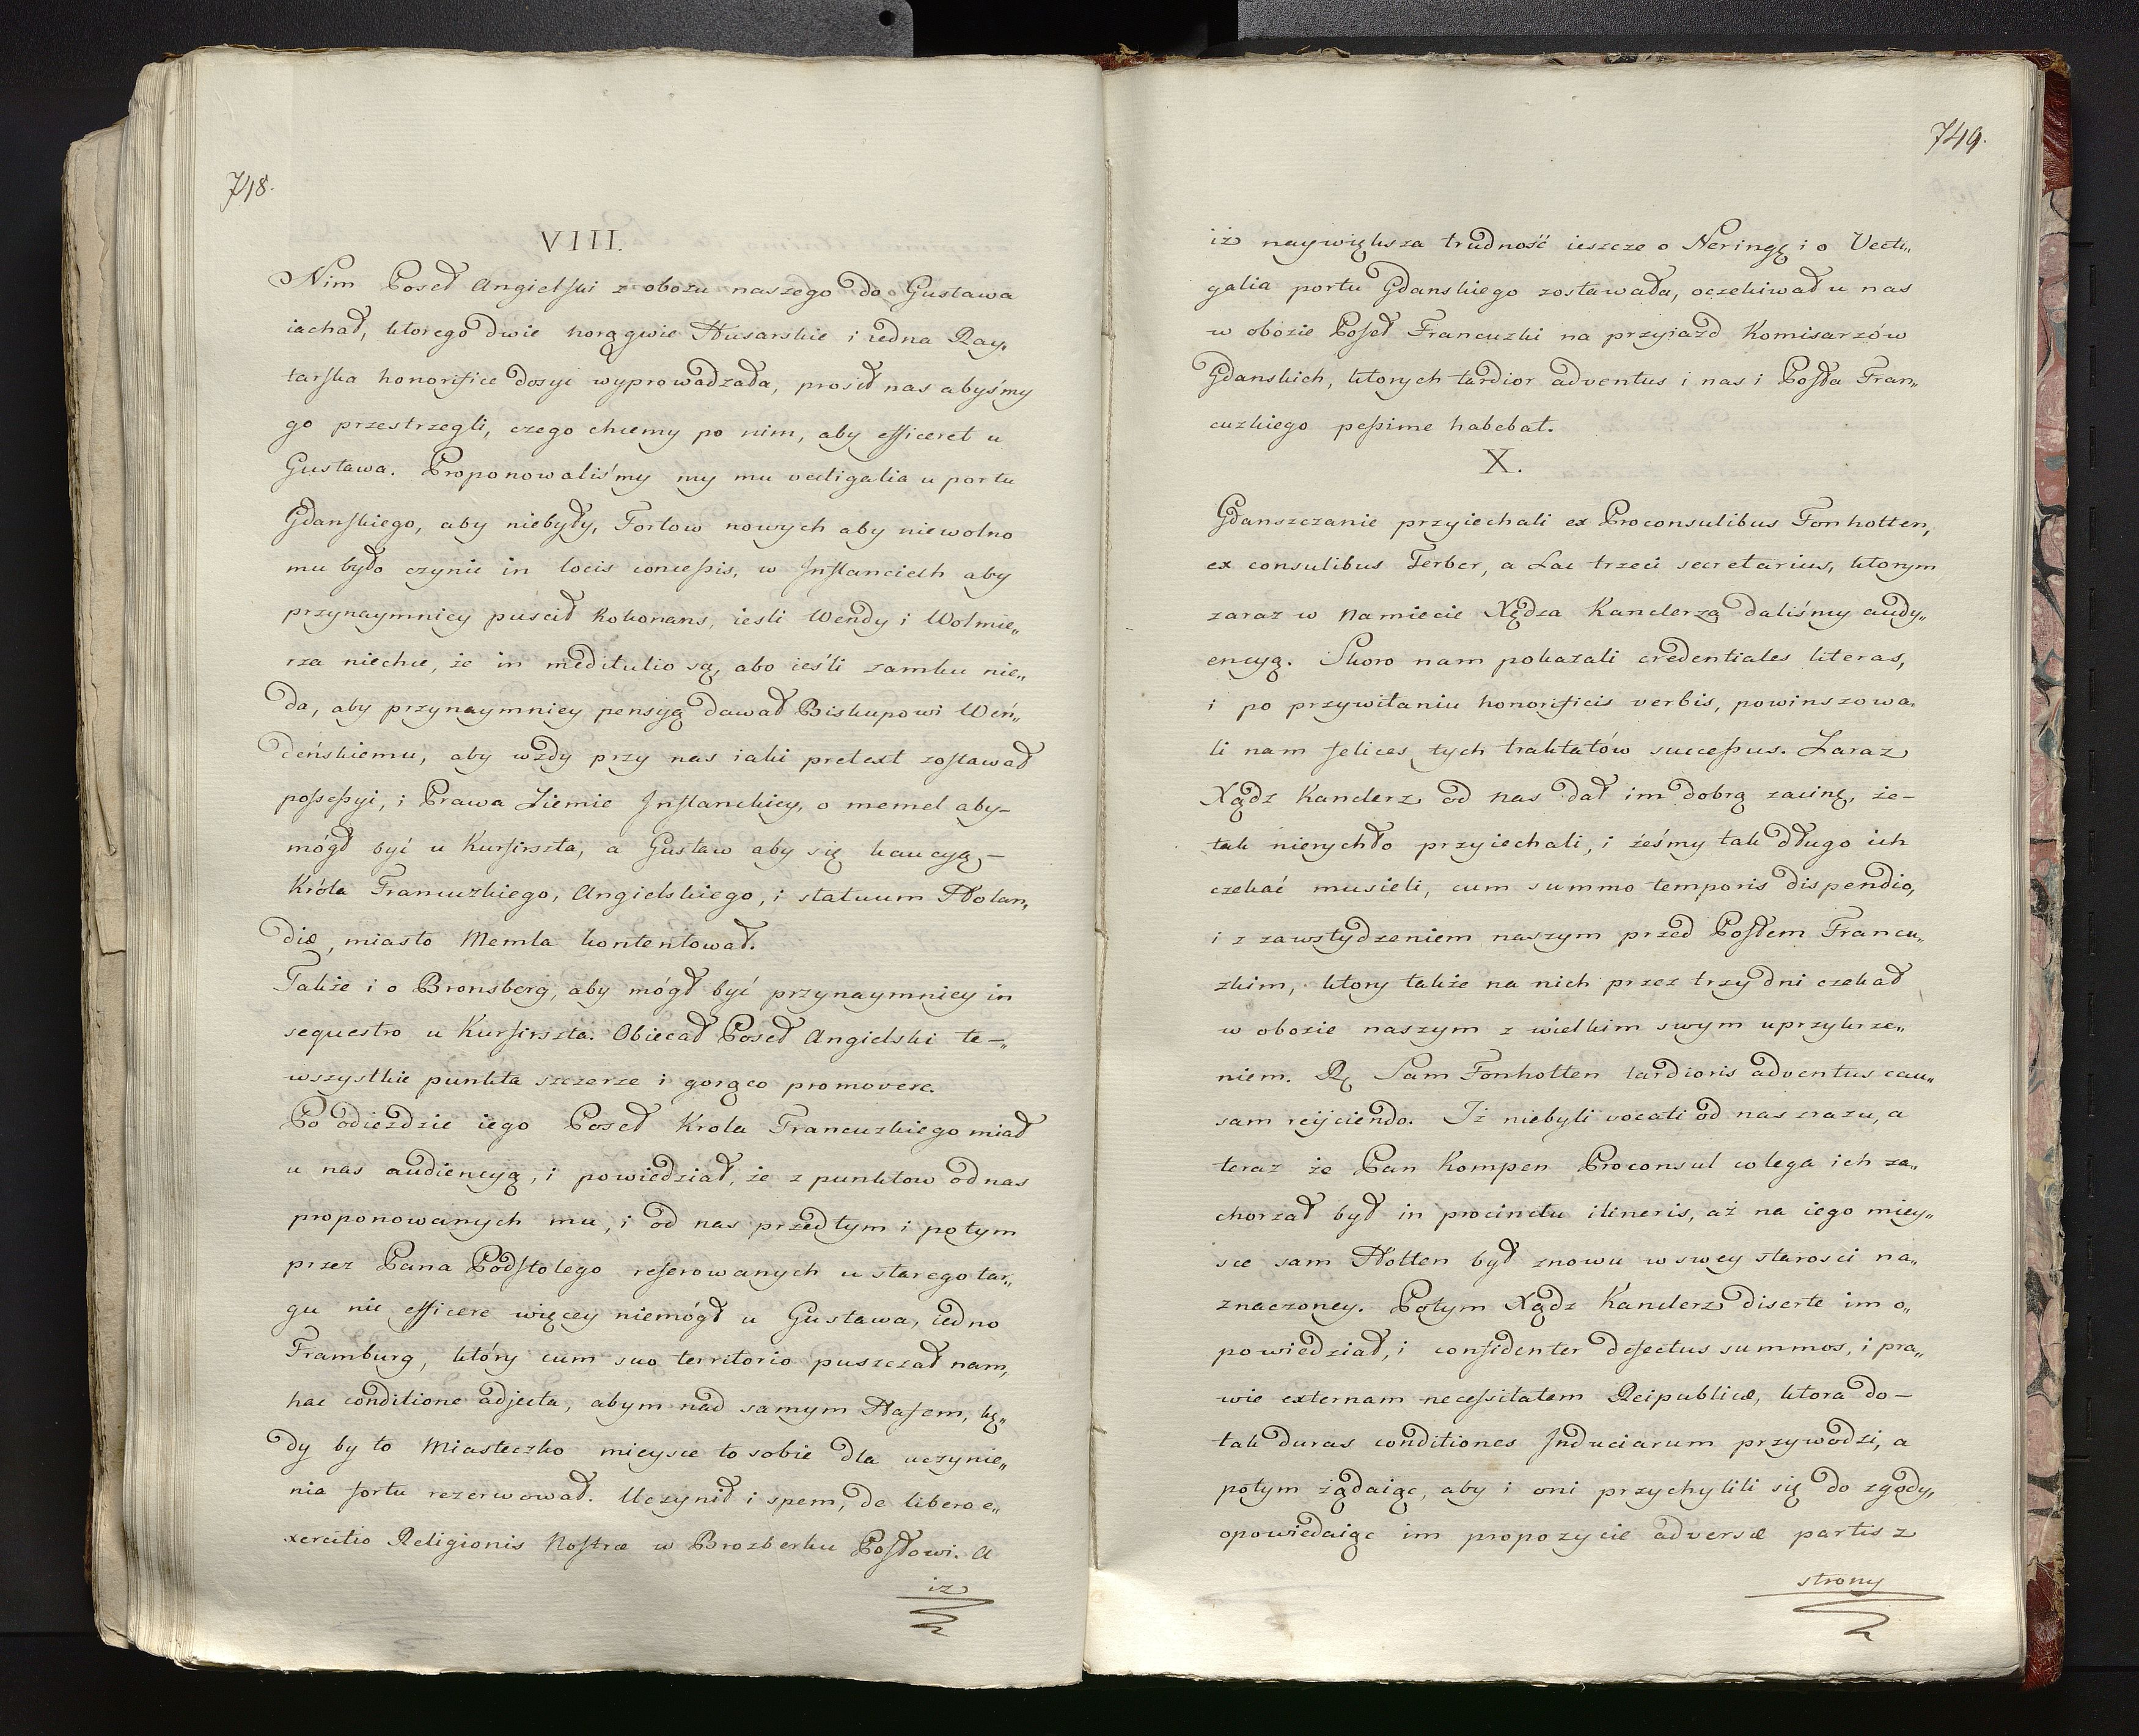 748.
VIII.
Nim Poseł Angielski z obozu naszego do Gustawa
iachał, ktorego dwie horągwie Husarskie i iedna Ray„
tarska honorifice dosyć wyprowadzała, prosił nas abyśmy
go przestrzegli, czego chcemy po nim, aby efficeret u
Gustawa. Proponowaliśmy my mu vectigalia u portu
Gdanskiego, aby niebyły, Fortow nowych aby niewolno
mu było czynić in locis concessis, w Inflanciech aby
przynaymniey puścił Kokonans, iesli Wendy i Wolmie„
rza niechce, że in meditulio są, abo ieśli zamku nie„
da, aby przynaymniey pensyą dawał Biskupowi Weń„
deńskiemu, aby wżdy przy nas iaki pretext zostawał
possessyi, i Prawa Ziemie Inflanckiey, o memel aby-
mógł być u Kurfirszta, a Gustaw aby się kaucyą-
Króla Francuzkiego, Angielskiego, i statuum Holan„
diæ, miasto Memla kontentował.
Także i o Bronsberg, aby mógł być przynaymniey in
sequestro u Kurfirszta. Obiecał Poseł Angielski te-„
wszystkie punkta szczerze i gorąco promovere.
Po odieździe iego Poseł Krola Francuzkiego miał
u nas audiencyą, i powiedział, że z punktow od nas
proponowanych mu, i od nas przedtym i potym
przez Pana Podstolego referowanych u starego tar„
gu nic efficere więcey niemógł u Gustawa, iedno
Framburg, który cum suo territorio puszczał nam,
hac conditione adjecta, abym nad samym Hafem, kę„
dy by to Miasteczko mieysce to sobie dla uczynie„
nia fortu rezerwował. Uczynił i spem, de libero e„
xercitio Religionis Nostræ w Brozberku Posłowi. A
iż
749.
iż naywiększa trudność ieszcze o Neringę i o Vecti„
galia portu Gdanskiego zostawała, oczekiwał u nas
w obozie Poseł Francuzki na przyiazd Komisarzów
Gdanskich, ktorych tardior adventus i nas i Posła Fran„
cuzkiego pessime habebat.
X.
Gdanszczanie przyiechali ex Proconsulibus Fonhotten,
ex consulibus Ferber, a Lac trzeci secretarius, ktorym
zaraz w Namiecie Xędza Kanclerza daliśmy audy„
encyą. Skoro nam pokazali credentiales literas,
i po przywitaniu honorificis verbis, powinszowa„
li nam felices tych traktatów successus. Zaraz
Xądz Kanclerz od nas dał im dobrą zacinę, że-
tak nierychło przyiechali, i żeśmy tak długo ich
czekać musieli, cum summo temporis dispendio,
i z zawstydzeniem naszym przed Posłem Francu„
zkim, ktory także na nich przez trzy dni czekał
w obozie naszym z wielkim swym uprzykrze„
niem. Rę Sam Fonhotten tardioris adventus cau„
sam reijciendo. Iż niebyli vocati od nas zrazu, a
teraz że Pan Kompen Proconsul colega ich za„
chorzał był in procinctu itineris, aż na iego miey„
sce sam Hotten był znowu w swey starosci na„
znaczoney. Potym Xądz Kanclerz diserte im o„
powiedział, i confidenter defectus summos, i pra„
wie externam necessitatem Reipublicæ, ktora do-
tak duras conditiones Induciarum przywodzi, a
potym żądaiąc, aby i oni przychylili się do zgody,
opowiedaiąc im propozycie adversæ partis z
strony